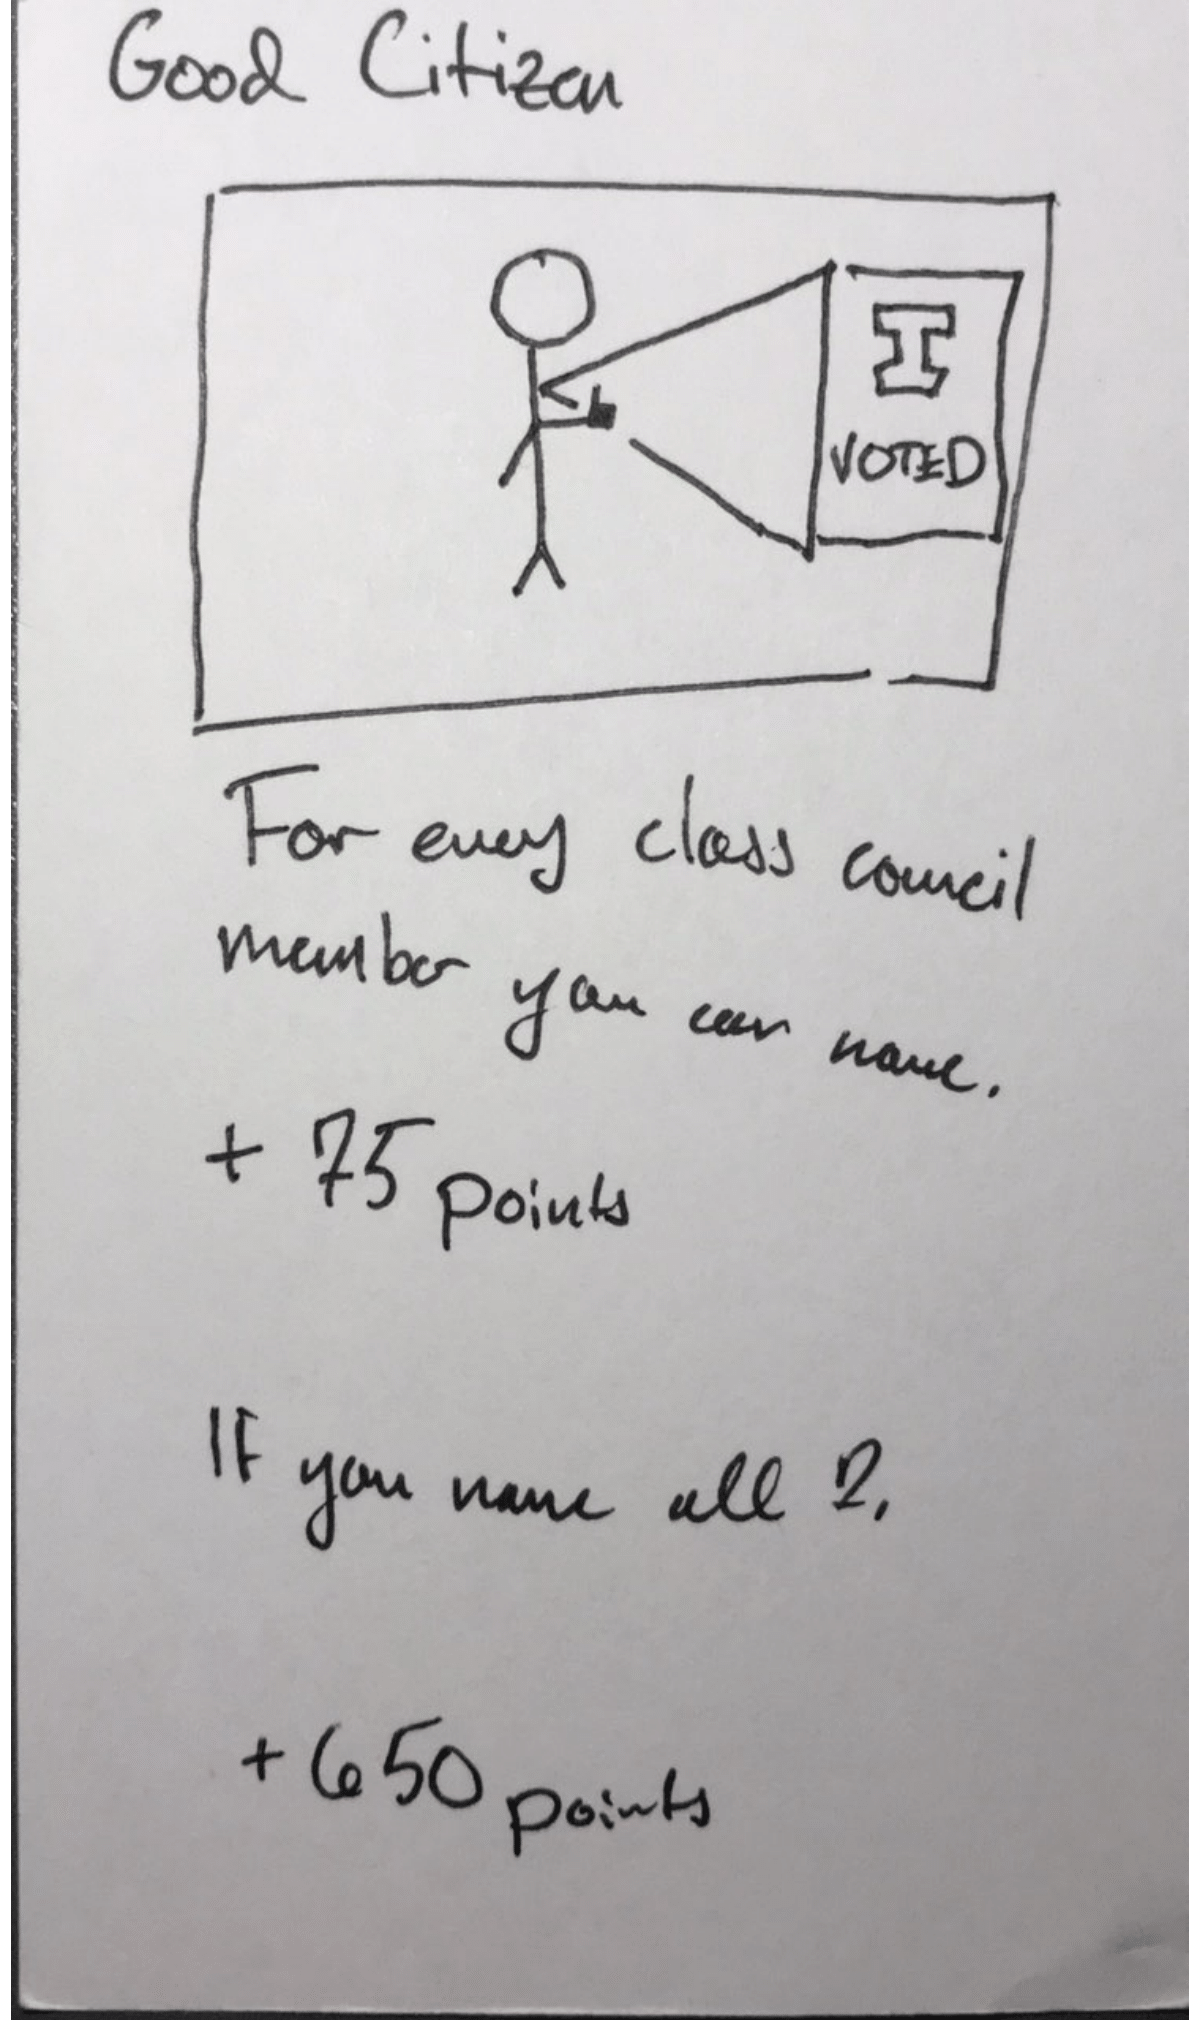 Good Citizen
I
VOTED
For every class council
member you can name.
+ 75 points
If you name all 2.
+ 650 points